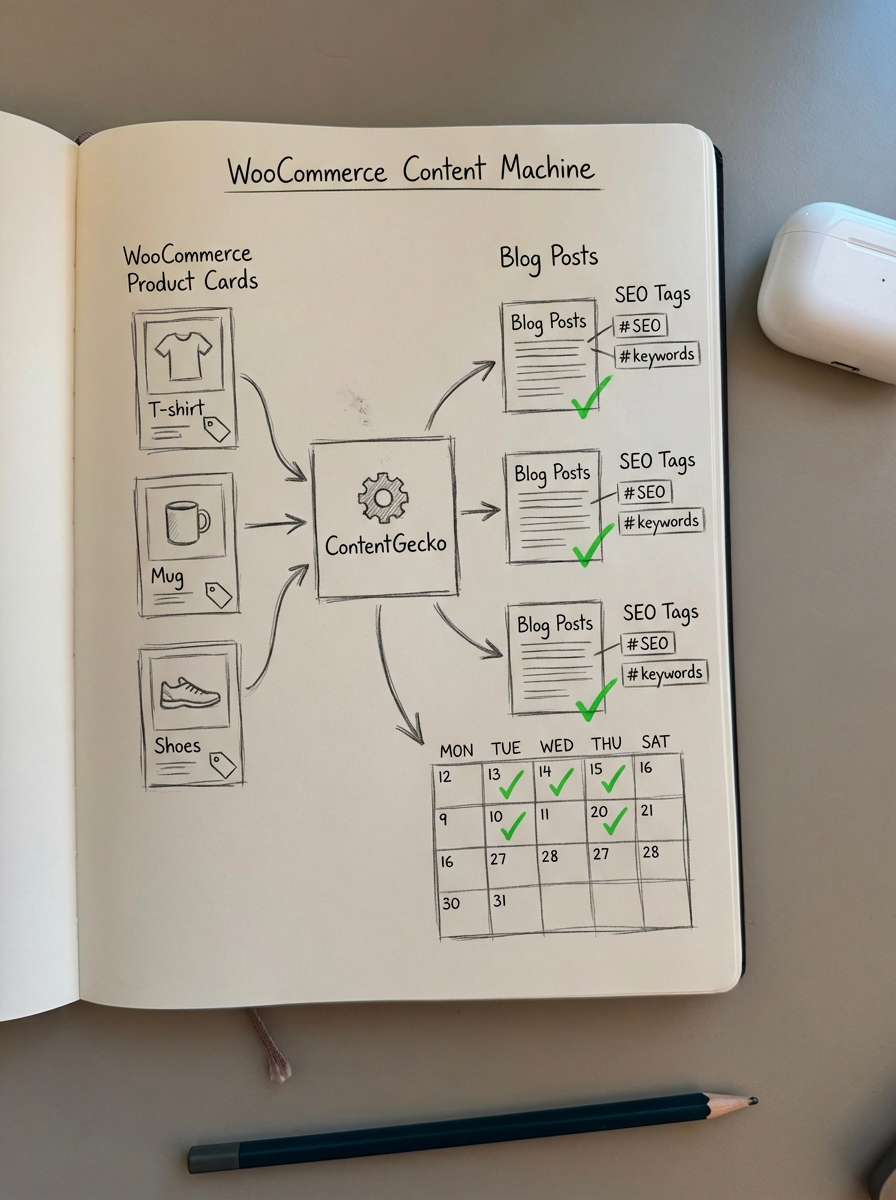 WooCommerce Content Machine
WooCommerce
Product Cards
T-shirt
Mug
Shoes
ContentGecko
Blog Posts
Blog Posts
SEO Tags
#SEO
#keywords
Blog Posts
SEO Tags
#SEO
#keywords
Blog Posts
SEO Tags
#SEO
#keywords
MON TUE WED THU SAT
12 13 14 15 16
9 10 11 20 21
16 27 28 27 28
30 31